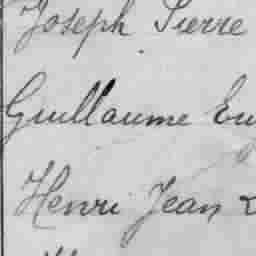 Joseph Pierre
Guillaume Eu
Henri Jean